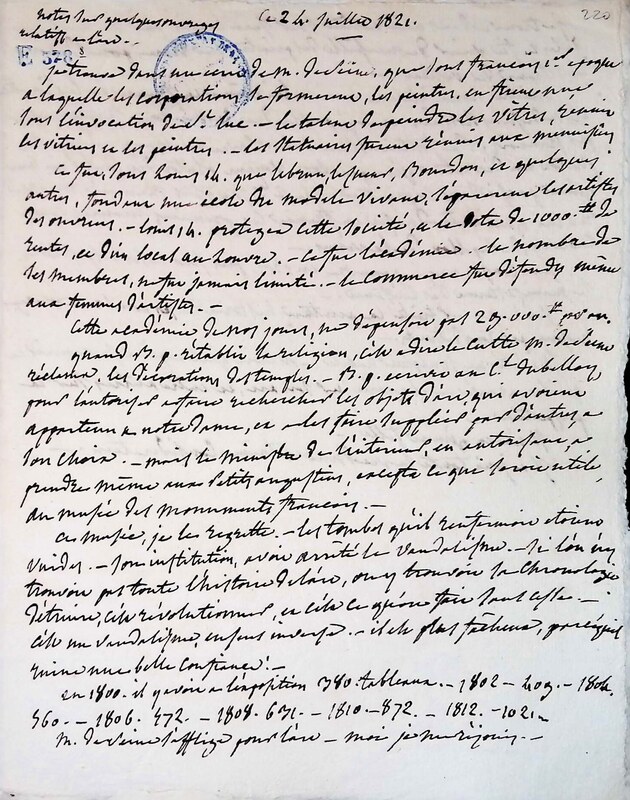 notes sur quelques ouvrages
relatifs à l'art. -
ce 24 juillet 1821.
220
E 538
je trouve dans un écrit de m. deseine, que sous françois 1er époque
a laquelle les corporations se formerent, les peintres, en firent une
sous l'invocation de St luc. - le talent de peindre les vitres, réunit
les vitriers et les peintres. - les Statuaires furent réunis aux menuisiers
ce fut, sous louis 14. que lebrun, lesueur, Bourdon, et quelques
autres, fondant une école du modele vivant, séparerent les artistes
des ouvriers. - louis 14. protegea cette société, et la dota de 1000 tt de
rentes, et d'un local au louvre. - ce fut l'académie. - le nombre de
ses membres, ne fut jamais limité. - le commerce fut défendu même
aux femmes d'artistes. -
Cette académie de nos jours, ne dépensoit pas 25.000 tt par an.
quand B. p. rétablir la religion, c'est à dire le culte m. deseine
réclama, les décorations des temples. - B. p. écrivit au Cal dubelloy
pour l'autoriser a faire rechercher les objets d'art, qui avoient
appartenu a notre dame, et a les faire suppléer par d'autres a
son choix. - mais le ministre de l'intérieur, en autorisant, a
prendre même aux Petits augustins, excepta ce que seroit utile,
au musée des monuments françois. -
ce musée, je le regrette. - les tombes qu'il renfermoit étoient
vuides. - son institution, avoit arrêté le vandalisme. - si l'on n'y
trouvoit pas toute l'histoire de l'art, on y trouvoit sa chronologie
détruire, c'est révolutionner, et c'est ce qu'on fait sans cesse. -
c'est un vandalisme, en sens inverse. - il est plus fâcheux, parcequ'il
ruine une belle confiance! -
en 1800. il y avoit a l'exposition 380 tableaux. - 1802 - - 1804.
560. - 1806. 572. - 1808. 631. - 1810. - 872. - 1812. -
m. deseine s'afflige pour l'art - moi je me réjouis. -